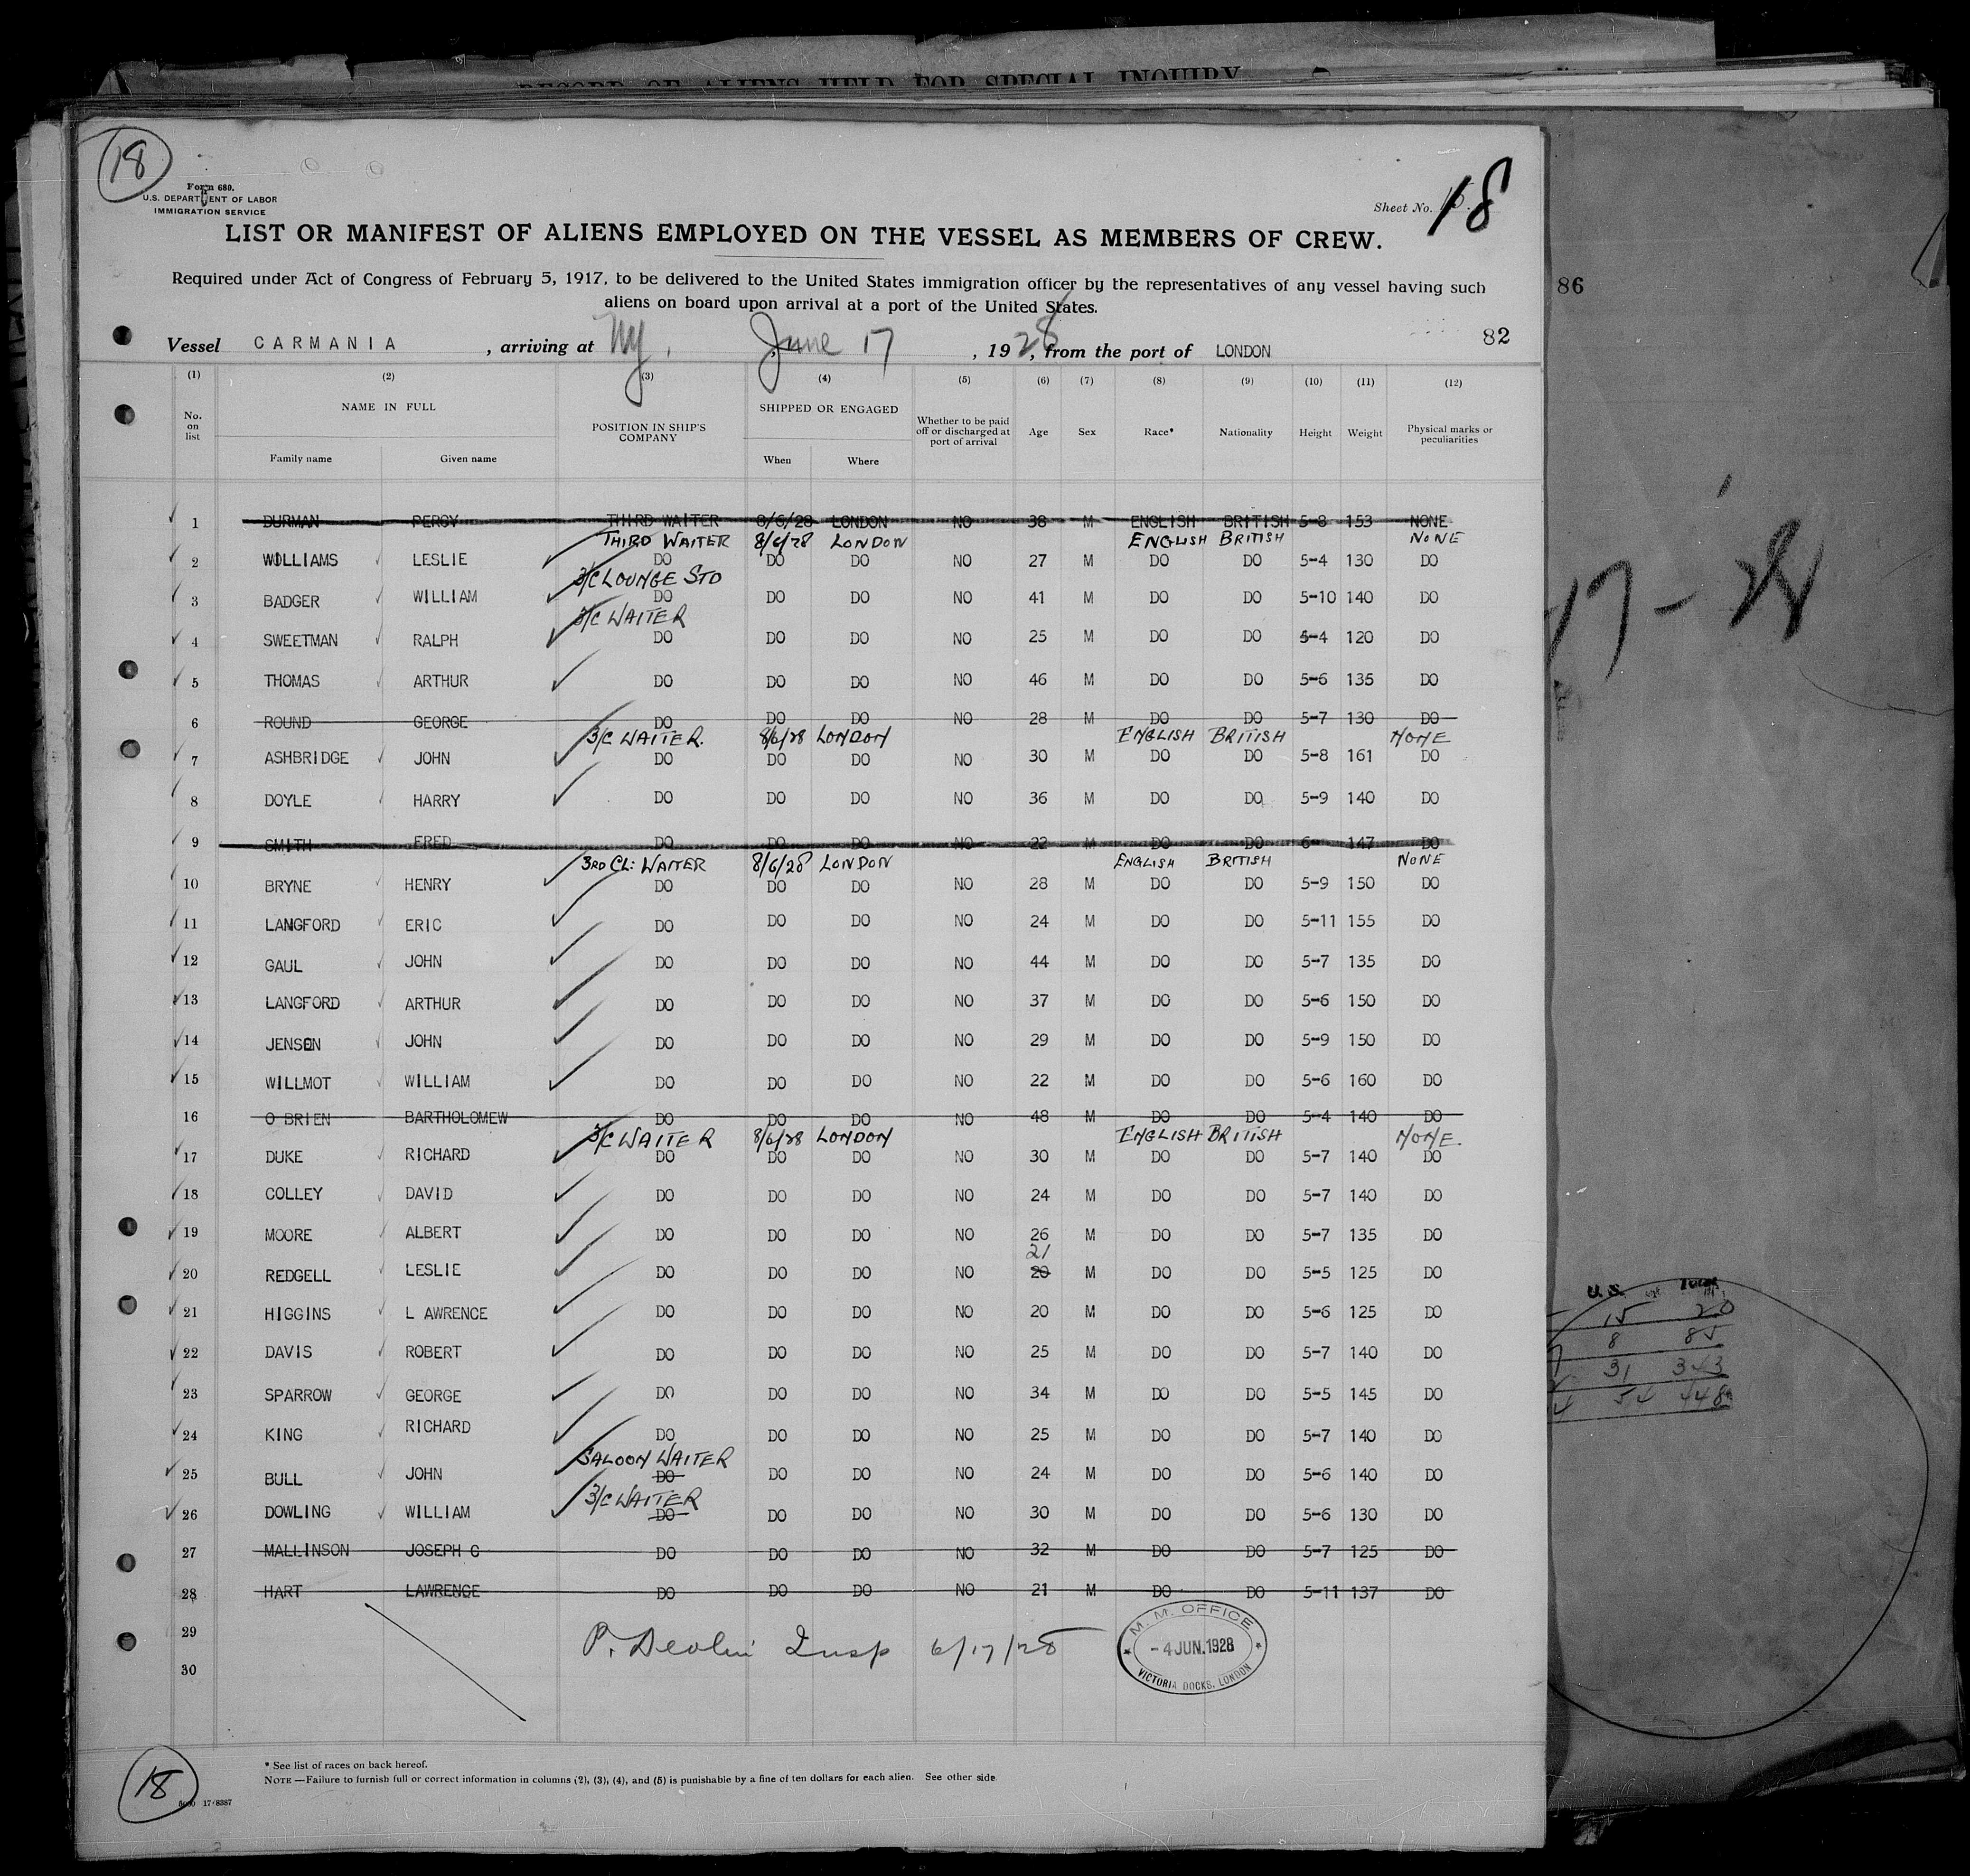 RECORD OF ALIENS HELD FOR SPECIAL INQUIRY
18
Form 680.
U.S. DEPARTMENT OF LABOR
IMMIGRATION SERVICE
Sheet No. 18
LIST OR MANIFEST OF ALIENS EMPLOYED ON THE VESSEL AS MEMBERS OF CREW.
Required under Act of Congress of February 5, 1917, to be delivered to the United States immigration officer by the representatives of any vessel having such
aliens on board upon arrival at a port of the United States.
86
82
Vessel CARMANIA , arriving at NY. June 17 , 1928, from the port of LONDON
(1) (2) (3) (4) (5) (6) (7) (8) (9) (10) (11) (12)
No. on list NAME IN FULL Family name Given name POSITION IN SHIP'S COMPANY SHIPPED OR ENGAGED When Where Whether to be paid off or discharged at port of arrival Age Sex Race* Nationality Height Weight Physical marks or peculiarities
1 DURMAN PERCY THIRD WAITER 8/6/28 LONDON NO 38 M ENGLISH BRITISH 5-8 153 NONE
THIRD WAITER 8/6/28 LONDON ENGLISH BRITISH NONE
2 WILLIAMS LESLIE DO DO DO NO 27 M DO DO 5-4 130 DO
3/C LOUNGE STD
3 BADGER WILLIAM DO DO DO NO 41 M DO DO 5-10 140 DO
3/C WAITER
4 SWEETMAN RALPH DO DO DO NO 25 M DO DO 5-4 120 DO
5 THOMAS ARTHUR DO DO DO NO 46 M DO DO 5-6 135 DO
6 ROUND GEORGE DO DO DO NO 28 M DO DO 5-7 130 DO
3/C WAITER. 8/6/28 LONDON ENGLISH BRITISH NONE
7 ASHBRIDGE JOHN DO DO DO NO 30 M DO DO 5-8 161 DO
8 DOYLE HARRY DO DO DO NO 36 M DO DO 5-9 140 DO
9 SMITH FRED DO DO DO NO 22 M DO DO 6- 147 DO
3RD CL: WAITER 8/6/28 LONDON ENGLISH BRITISH NONE
10 BRYNE HENRY DO DO DO NO 28 M DO DO 5-9 150 DO
11 LANGFORD ERIC DO DO DO NO 24 M DO DO 5-11 155 DO
12 GAUL JOHN DO DO DO NO 44 M DO DO 5-7 135 DO
13 LANGFORD ARTHUR DO DO DO NO 37 M DO DO 5-6 150 DO
14 JENSEN JOHN DO DO DO NO 29 M DO DO 5-9 150 DO
15 WILLMOT WILLIAM DO DO DO NO 22 M DO DO 5-6 160 DO
16 O BRIEN BARTHOLOMEW DO DO DO NO 48 M DO DO 5-4 140 DO
3/C WAITER 8/6/28 LONDON ENGLISH BRITISH NONE.
17 DUKE RICHARD DO DO DO NO 30 M DO DO 5-7 140 DO
18 COLLEY DAVID DO DO DO NO 24 M DO DO 5-7 140 DO
19 MOORE ALBERT DO DO DO NO 26 M DO DO 5-7 135 DO
21
20 REDGELL LESLIE DO DO DO NO 20 M DO DO 5-5 125 DO
21 HIGGINS L AWRENCE DO DO DO NO 20 M DO DO 5-6 125 DO
22 DAVIS ROBERT DO DO DO NO 25 M DO DO 5-7 140 DO
23 SPARROW GEORGE DO DO DO NO 34 M DO DO 5-5 145 DO
24 KING RICHARD DO DO DO NO 25 M DO DO 5-7 140 DO
SALOON WAITER
25 BULL JOHN DO DO DO NO 24 M DO DO 5-6 140 DO
3/C WAITER
26 DOWLING WILLIAM DO DO DO NO 30 M DO DO 5-6 130 DO
27 MALLINSON JOSEPH C DO DO DO NO 32 M DO DO 5-7 125 DO
28 HART LAWRENCE DO DO DO NO 21 M DO DO 5-11 137 DO
29
30
P. Devlin Insp 6/17/28
M. M. OFFICE
-4 JUN.1928
VICTORIA DOCKS, LONDON
* See list of races on back hereof.
NOTE—Failure to furnish full or correct information in columns (2), (3), (4), and (5) is punishable by a fine of ten dollars for each alien. See other side
18
17-8387
17-28
U.S. Total
15 20
8 85
31 343
54 448